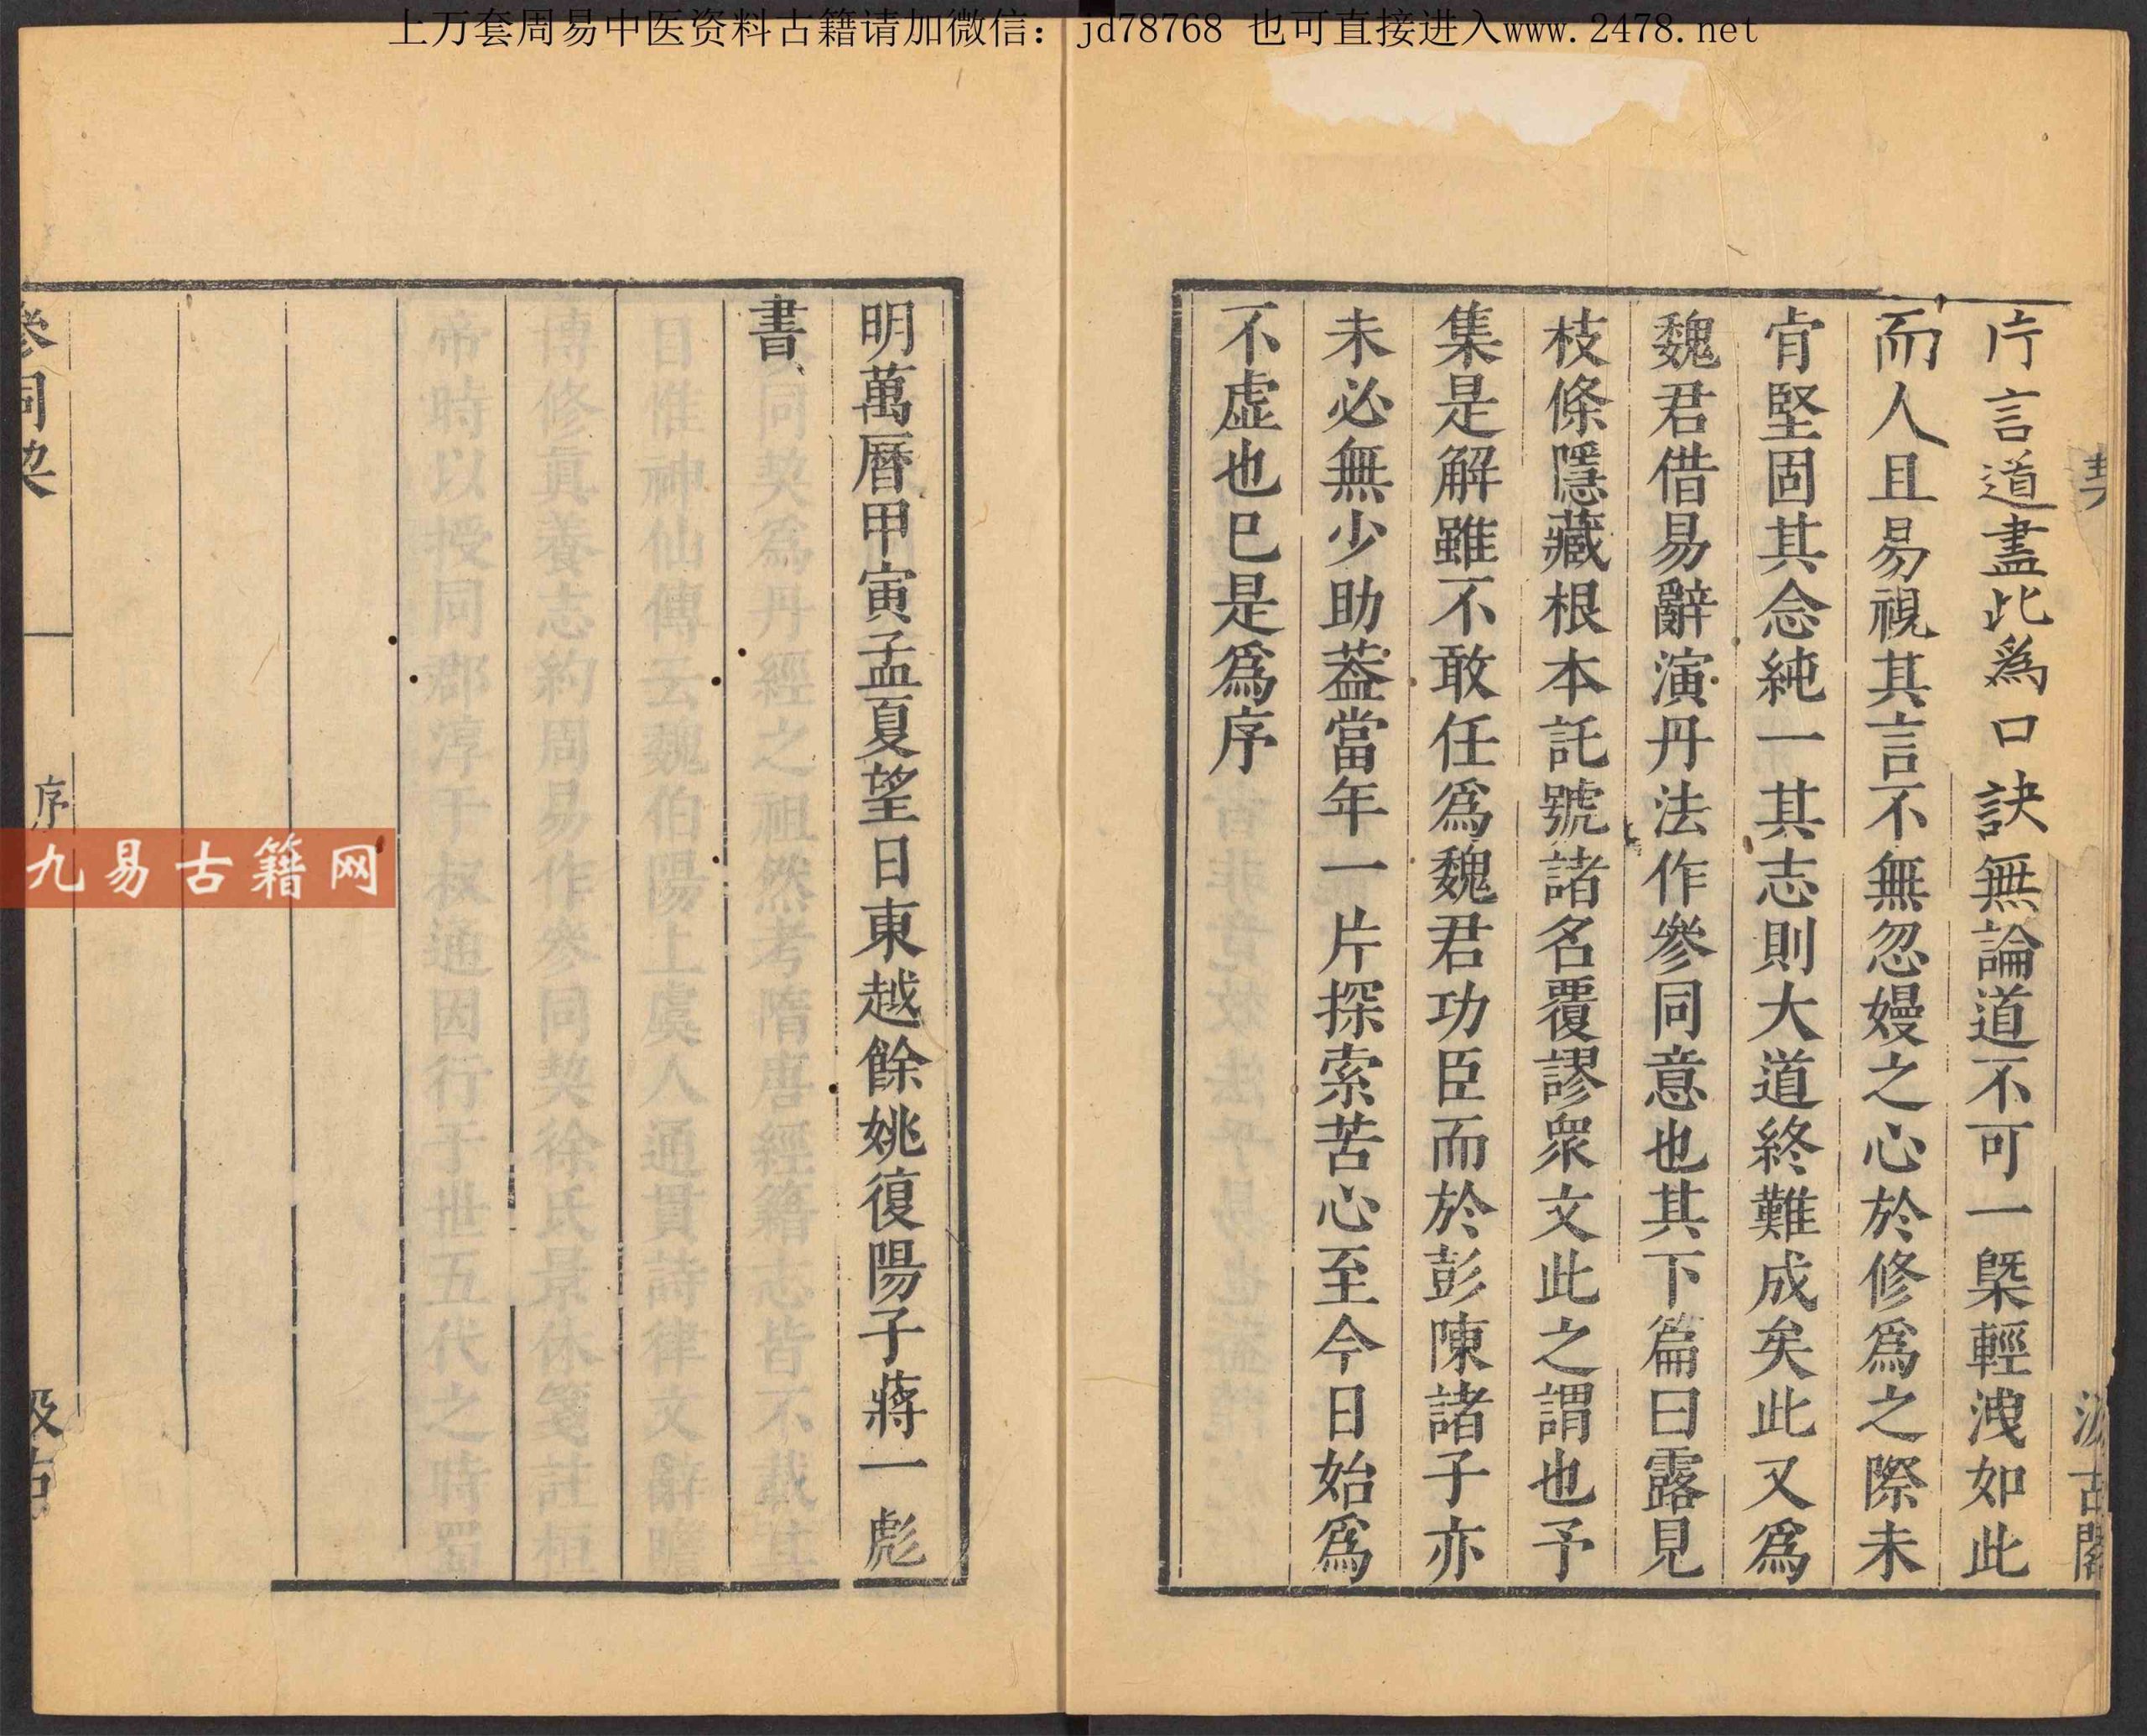 上万套周易中医资料古籍请加微信：jd78768 也可直接进入www.2478.net
片言道盡此爲口訣無論道不可一槩輕洩如此
而人且易視其言不無忽嫚之心於修爲之際未
肯堅固其念純一其志則大道終難成矣此又爲
魏君借易辭演丹法作參同意也其下篇曰露見
枝條隱藏根本託號諸名覆謬衆文此之謂也予
集是解雖不敢任爲魏君功臣而於彭陳諸子亦
未必無少助葢當年一片探索苦心至今日始爲
不虛也已是爲序
明萬曆甲寅孟夏望日東越餘姚復陽子蔣一彪
書
參同契
序
汲古
九易古籍网